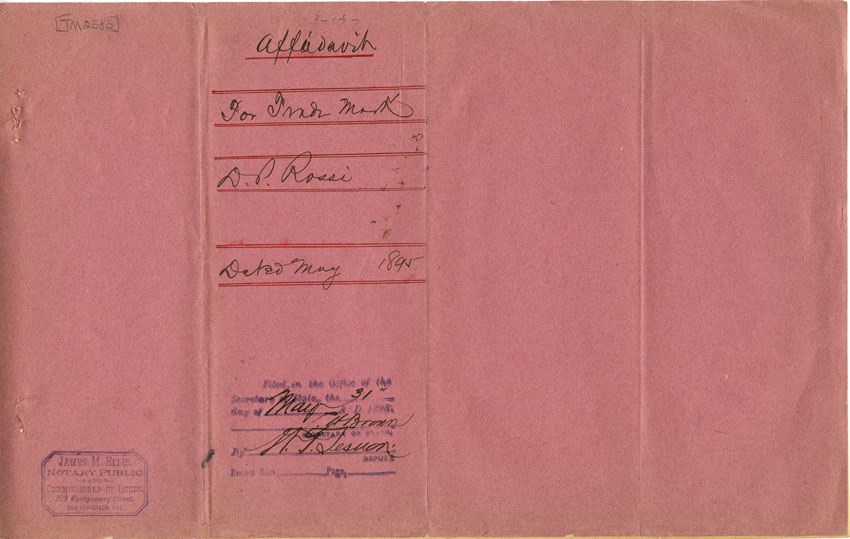 TM2585
Affidavit
For Trade Mark
D. P. Rossi
Dated May 1895
Filed in the Office of the
Secretary of State, the 31"
day of May A. D. 1895
Brown
SECRETARY OF STATE
By
DEPUTY
Record Book Page
JAMES M. ELLIS,
NOTARY PUBLIC
AND
COMMISSIONER OF DEEDS
Montgomery Street,
SAN FRANCISCO, CAL.